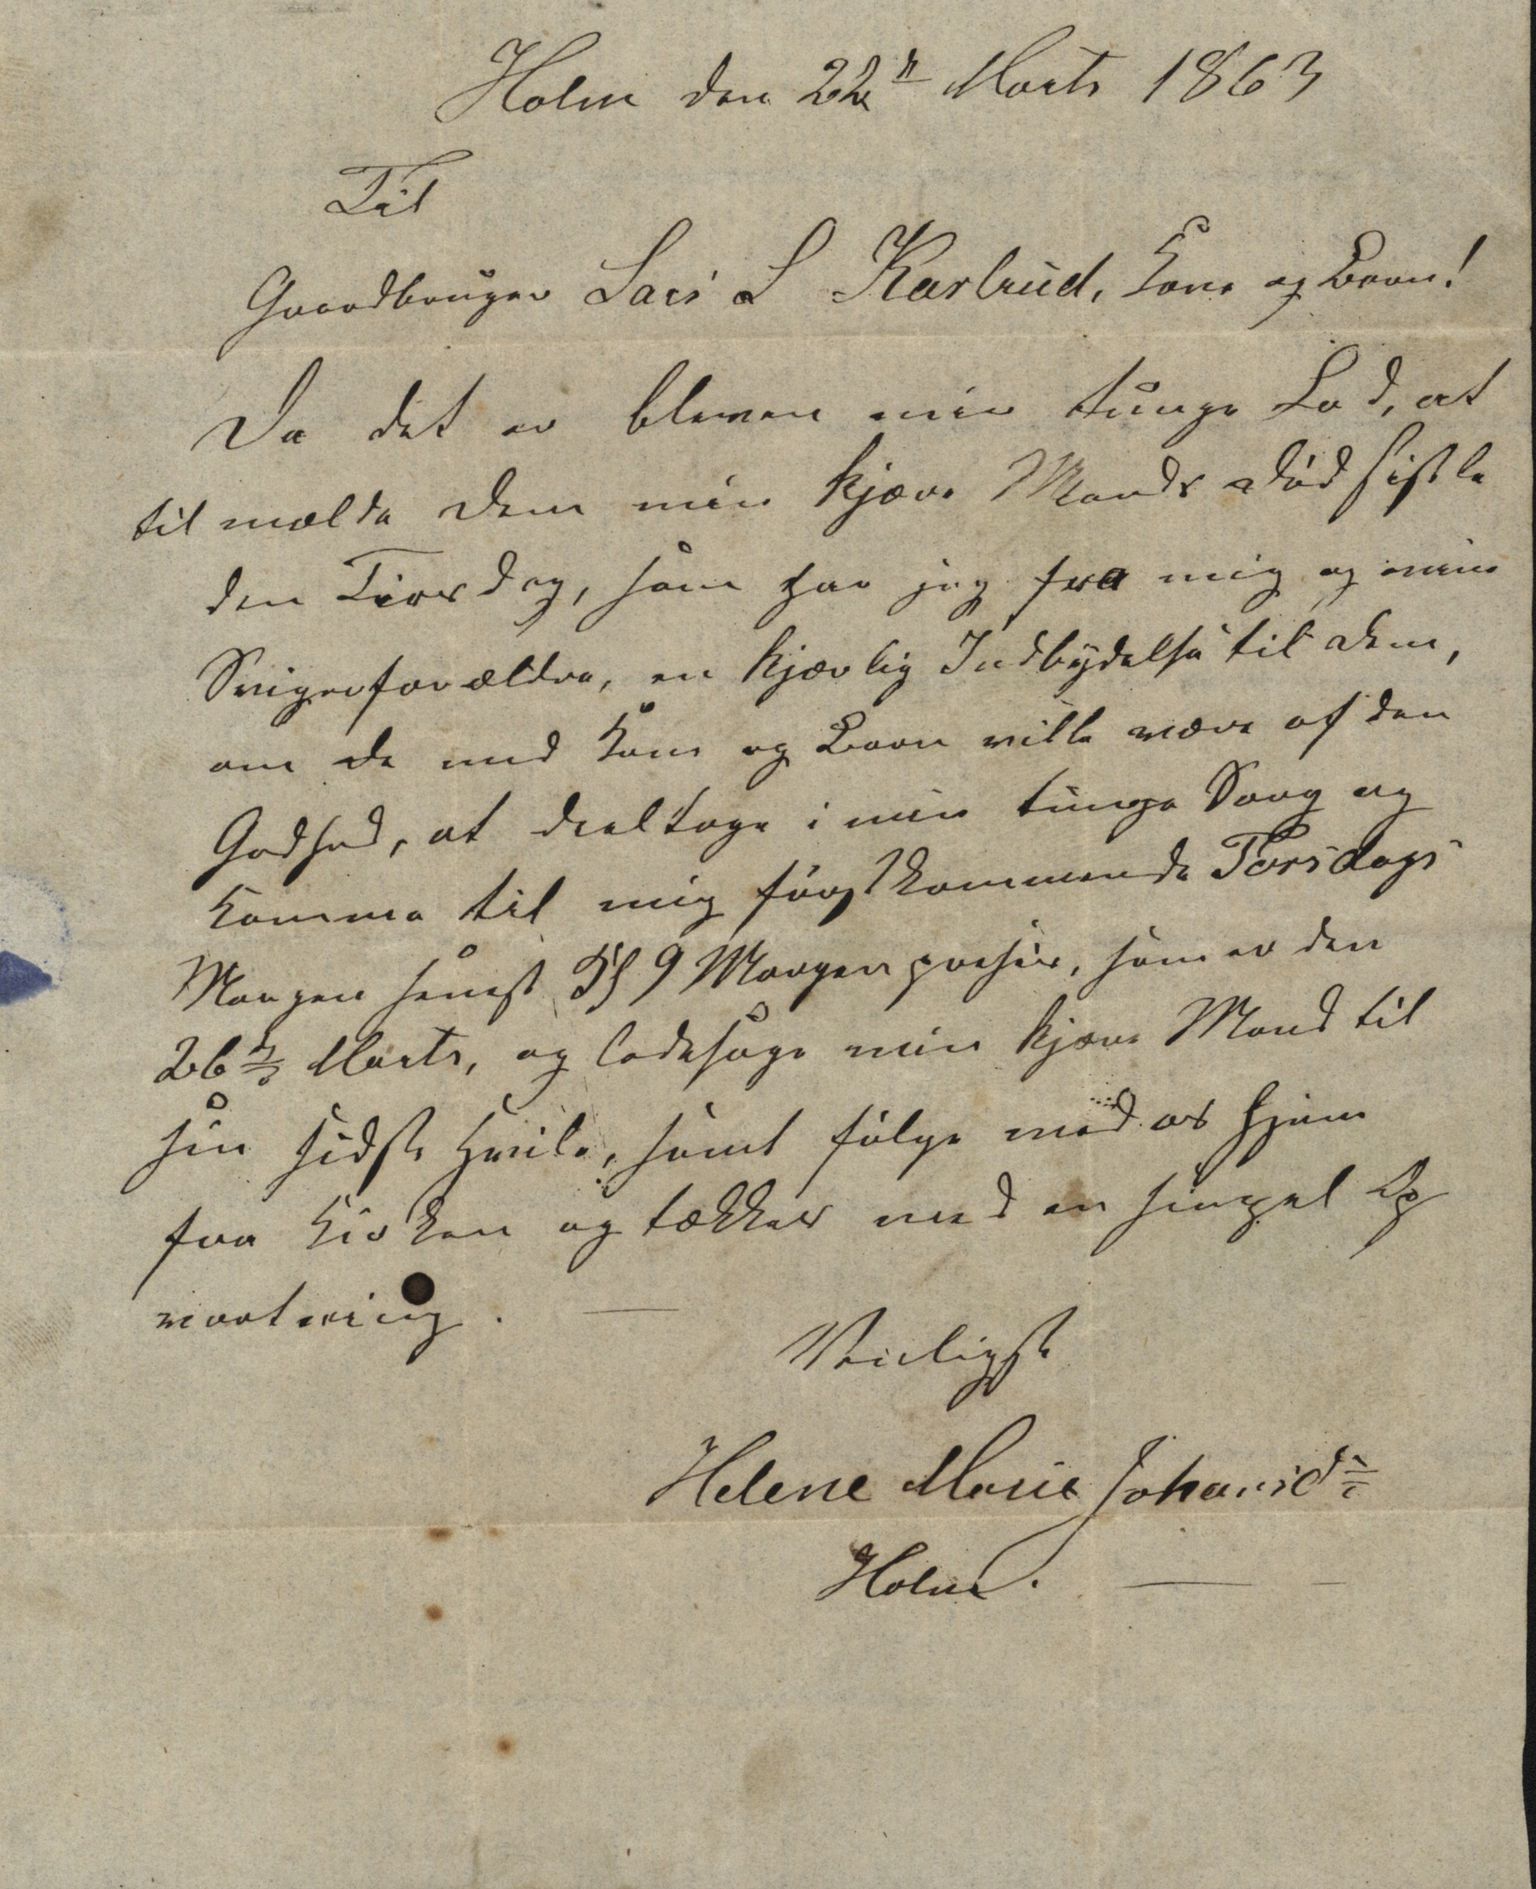 Holm den 22n Marts 1863
Til
Gaardbruger Lars L Karlrud, Kone og Børn!
Da det er bleven min tunge Lod, at
til mælde Dem min kjære Mands Død sistle
den Tirsdag, som har jeg fra mig og mine
Svigerforældre, en kjærlig Indbydelse til Dem,
om De med Kone og Børn ville være af den
Godhed, at deeltage i min tunge Sorg og
komme til mig førstkommende Torsdags
Morgen senest Kl 9 Morgen præsis, som er den
26de Marts, og ledesage min kjære Mand til
sin sidste Hvile, samt følge med os hjem
fra Kirken og tækkes med en simpel Op
vartning.
Venligst
Helene Marie Johansd:
Holm.